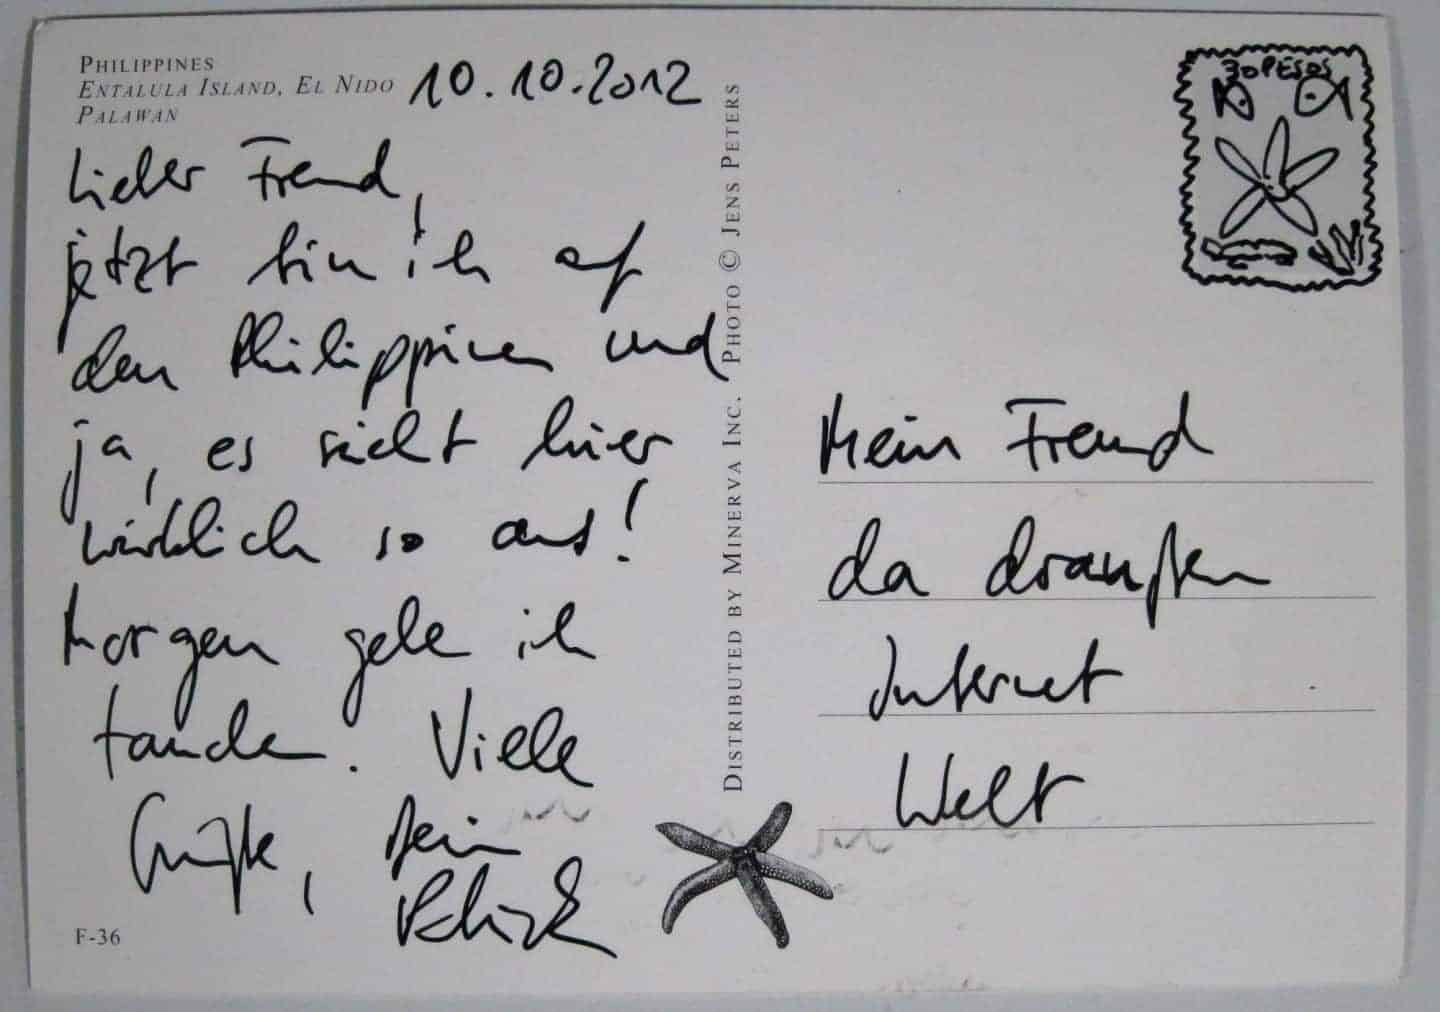 PHILIPPINES
ENTALULA ISLAND, EL NIDO
PALAWAN
10.10.2012
Lieber Freund,
jetzt bin ich auf
den Philippinen und
ja, es sieht hier
wirklich so aus!
Morgen gehe ich
tauchen. Viele
Grüße, Dein
F-36
DISTRIBUTED BY MINERVA INC. PHOTO © JENS PETERS
30 PESOS
Mein Freund
da draußen
Internet
Welt